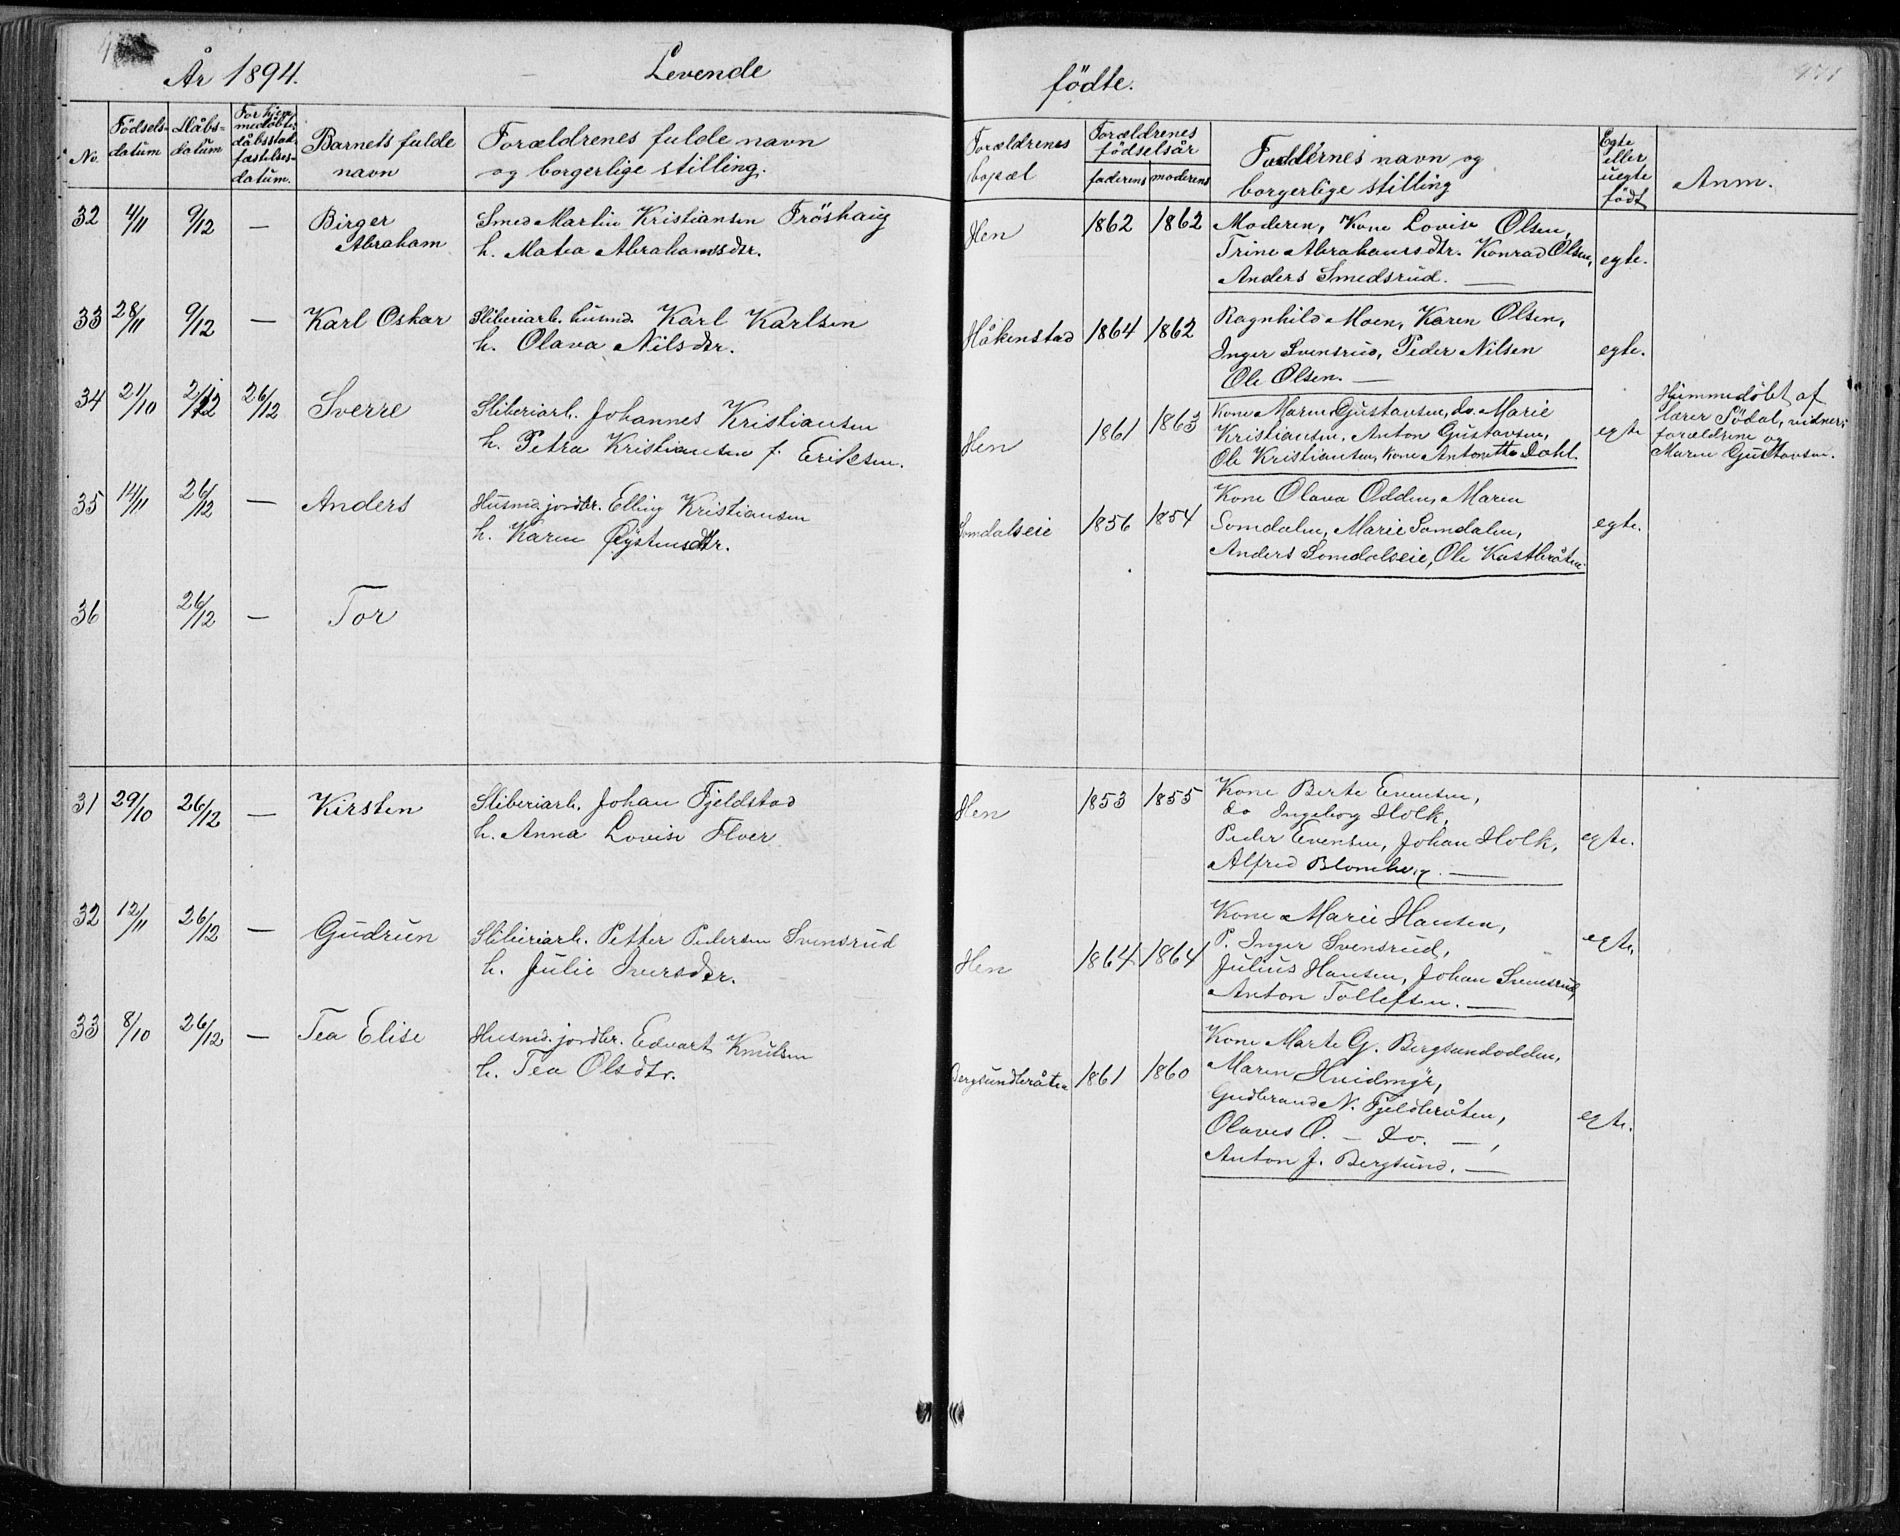 År 1894. Levende födte.
No. Födsels-datum Dåbs-datum dåbsstad-fæstelses-datum. Barnets fulde navn Forældrenes fulde navn og borgerlige stilling. Forældrenes bopæl Forældrenes födselsår faderens moderens Faddernes navn og borgerlige stilling Egte eller uegte födt Anm.
32 4/11 9/12 — Birger Smed Martin Kristiansen Fröshaug Hen 1862 1862 Moderen, Kone Lovise Olsen,
Abraham h. Matea Abrahamsdtr. Trine Abrahamsdtr. Konrad Olsen, egte.
Anders Smedsrud. —
33 28/11 9/12 — Karl Oskar Sliberiarb. husmd. Karl Karlsen Håkenstad 1864 1862 Ragnhild Moen, Karen Olsen,
h. Olava Nilsdtr. Inger Svensrud, Peder Nilsen egte.
Ole Olsen. —
34 21/10 2/12 26/12 Sverre Sliberiarb. Johannes Kristiansen Hen 1861 1863 Kone Maren Gustavsen, do. Marie egte Hjemmedöbt af
h. Petra Kristiansen f. Eriksen. Kristiansen, Anton Gustavsen, lærer Södal, vidner:
Ole Kristiansen, Kone Antonette Dahl. forældrene og
Maren Gustavsen.
35 14/11 26/12 — Anders Husmd. jordbr. Elling Kristiansen Somdalseie 1856 1854 Kone Olava Odden, Maren
h. Karen Öystensdtr. Somdalen, Marie Somdalen, egte.
Anders Somdalseie, Ole Kastbråten.
36 26/12 — Tor
31 29/10 26/12 — Kirsten Sliberiarb. Johan Fjeldstad Hen 1853 1855 Kone Berte Evensen,
h. Anna Lovise Flver do Ingeborg Holk,
Peder Evensen, Johan Holk, egte.
Alfred Blomberg. —
32 12/11 26/12 — Gudrun Sliberiarb. Petter Pedersen Svensrud Hen 1864 1864 Kone Marie Hansen,
h. Julie Iversdtr. P. Inger Svensrud, egte.
Julius Hansen, Johan Svensrud,
Anton Tollefsen. —
33 8/10 26/12 — Tea Elise Husmd. jordbr. Edvart Knutsen Bergsundbråten 1861 1860 Kone Marte G. Bergsundodden,
h. Tea Olsdtr. Maren Hvidmyr,
Gudbrand N. Fjeldbråten, egte.
Olaves O. — Do. —,
Anton J. Bergsund. —